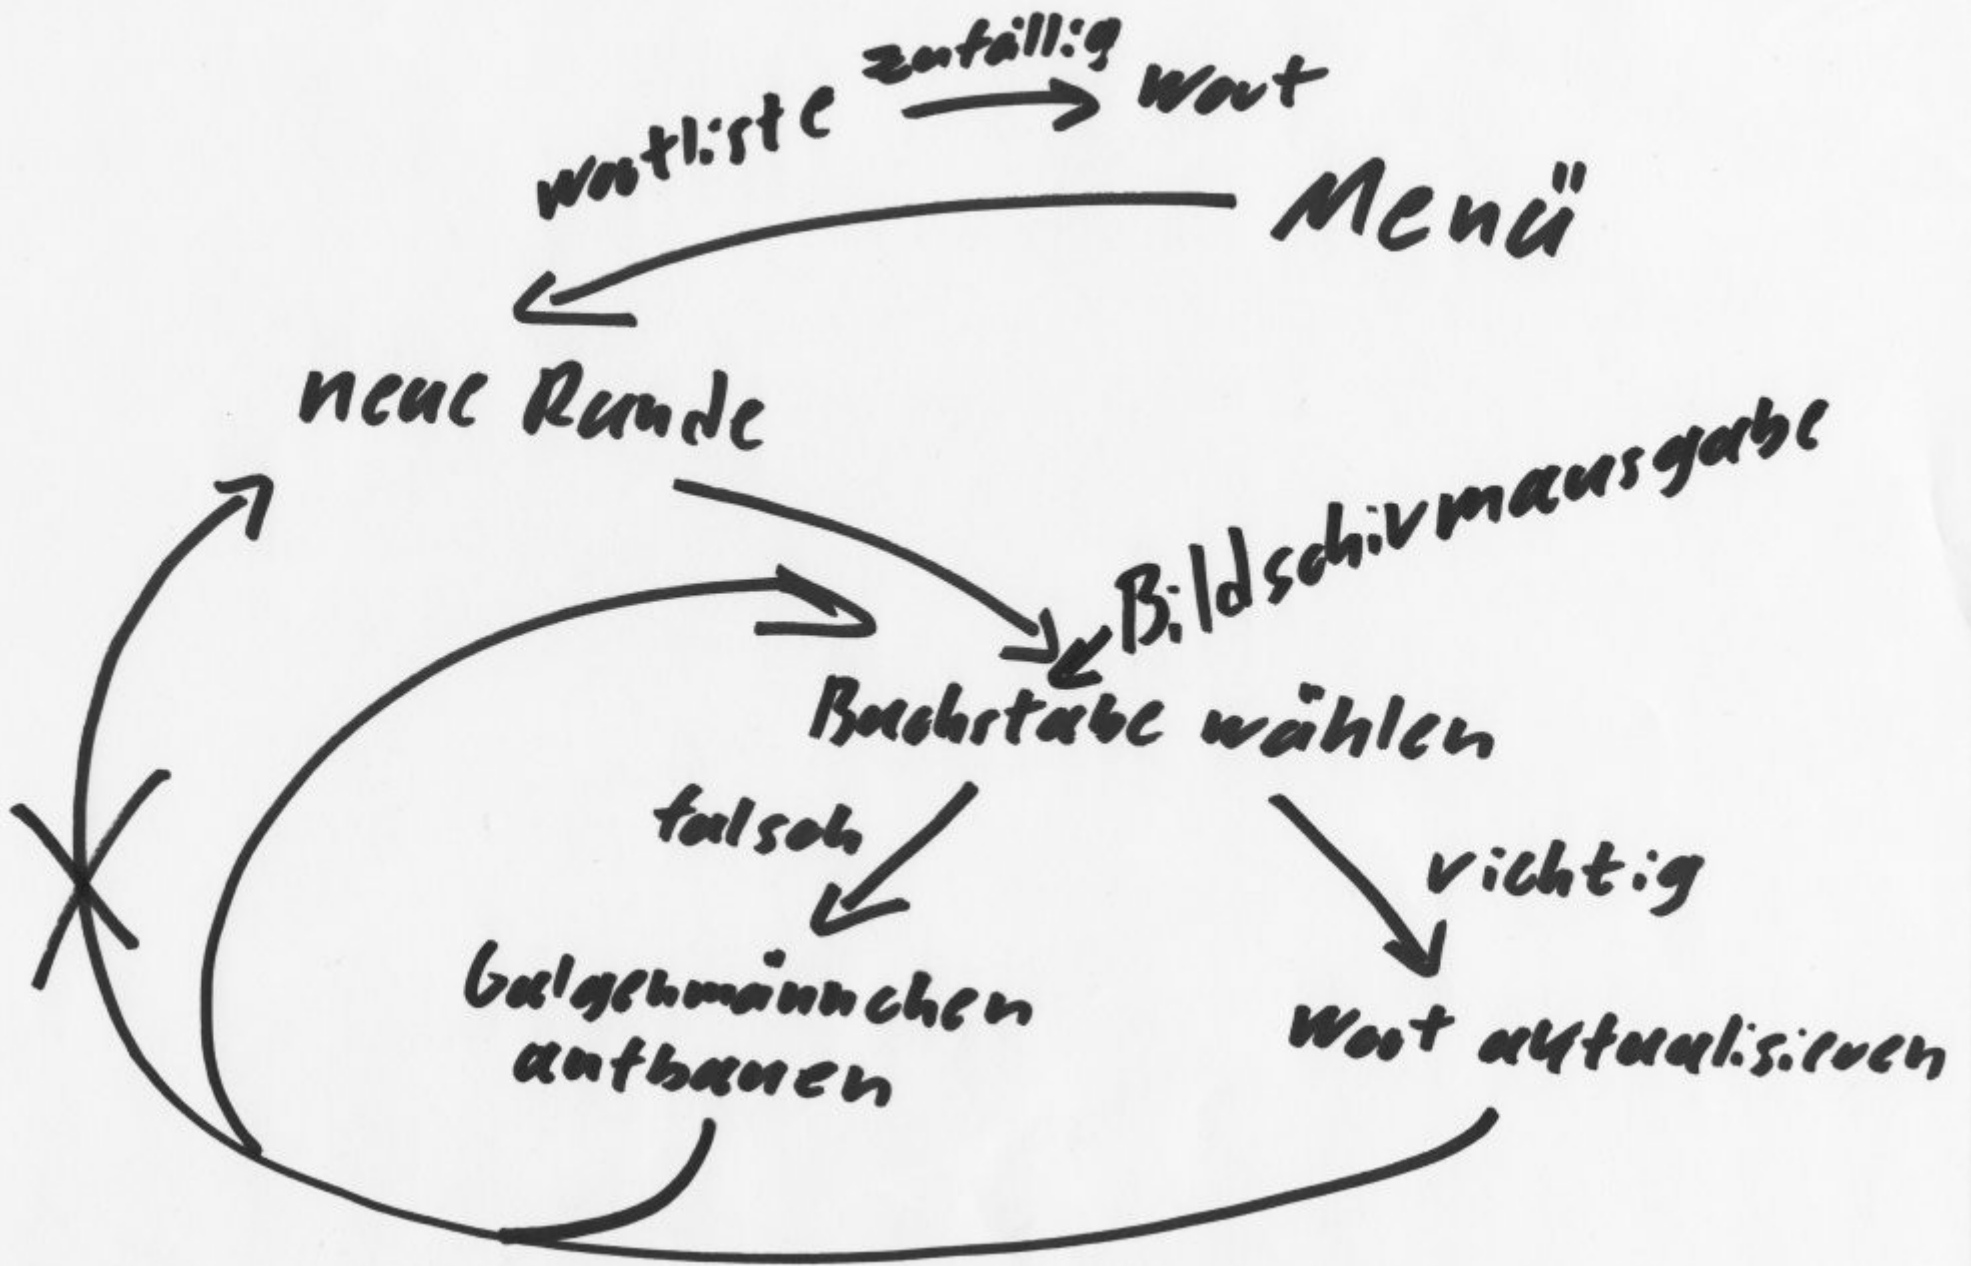 zufällig
wortliste → Wort
Menü
neue Runde
Bildschirmausgabe
Buchstabe wählen
falsch
richtig
Galgenmännchen
aufbauen
Wort aktualisieren